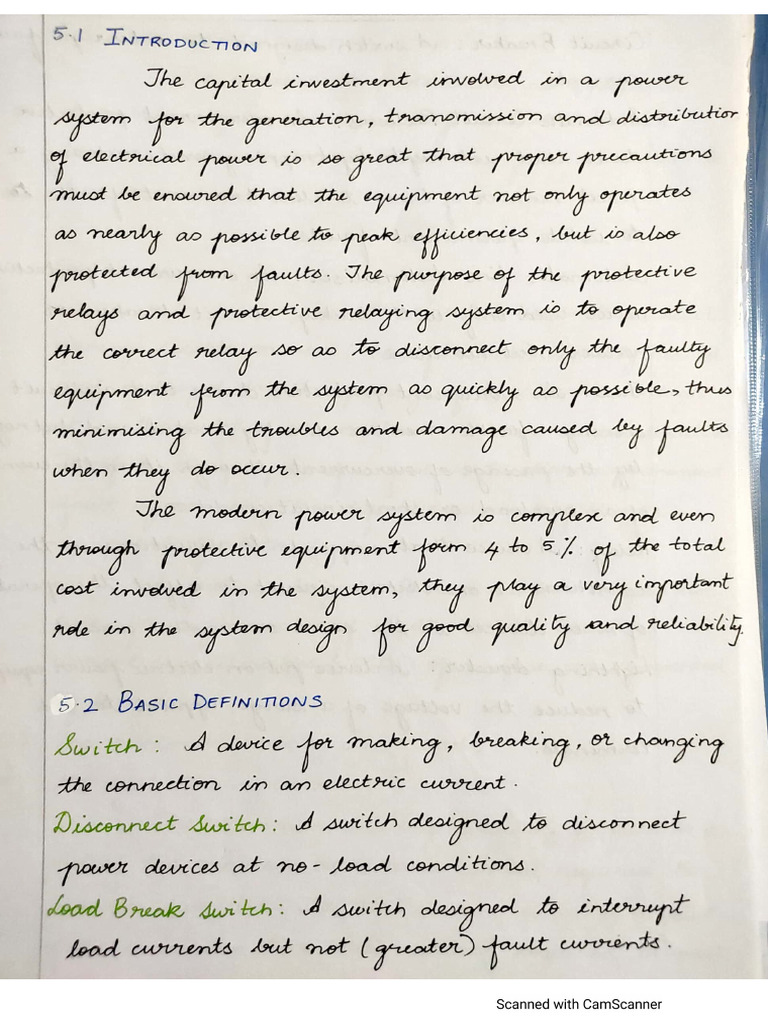 5.1 INTRODUCTION
The capital investment involved in a power
system for the generation, transmission and distribution
of electrical power is so great that proper precautions
must be ensured that the equipment not only operates
as nearly as possible to peak efficiencies, but is also
protected from faults. The purpose of the protective
relays and protective relaying system is to operate
the correct relay so as to disconnect only the faulty
equipment from the system as quickly as possible, thus
minimising the troubles and damage caused by faults
when they do occur.
The modern power system is complex and even
through protective equipment form 4 to 5% of the total
cost involved in the system, they play a very important
role in the system design for good quality and reliability.
5.2 BASIC DEFINITIONS
Switch: A device for making, breaking, or changing
the connection in an electric current.
Disconnect Switch: A switch designed to disconnect
power devices at no-load conditions.
Load Break Switch: A switch designed to interrupt
load currents but not (greater) fault currents.
Scanned with CamScanner